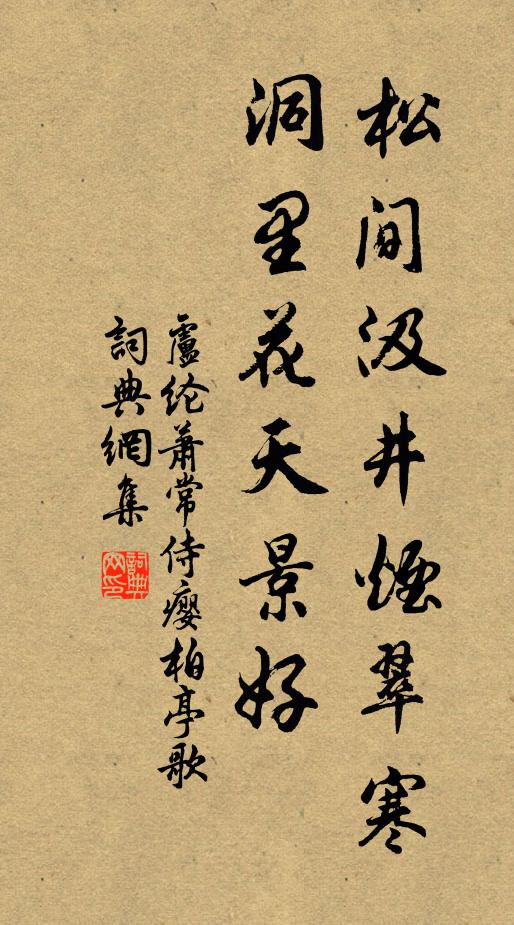 松間汲井煙翠寒
洞里花天景好
盧纶蕭常侍瘿柏亭歌
詞典網集
詞典網印